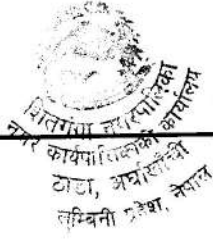 शितगंगा नगरपालिका
नगर कार्यपालिकाको कार्यालय
ठाडा, अर्घाखाँची
लुम्बिनी प्रदेश, नेपाल